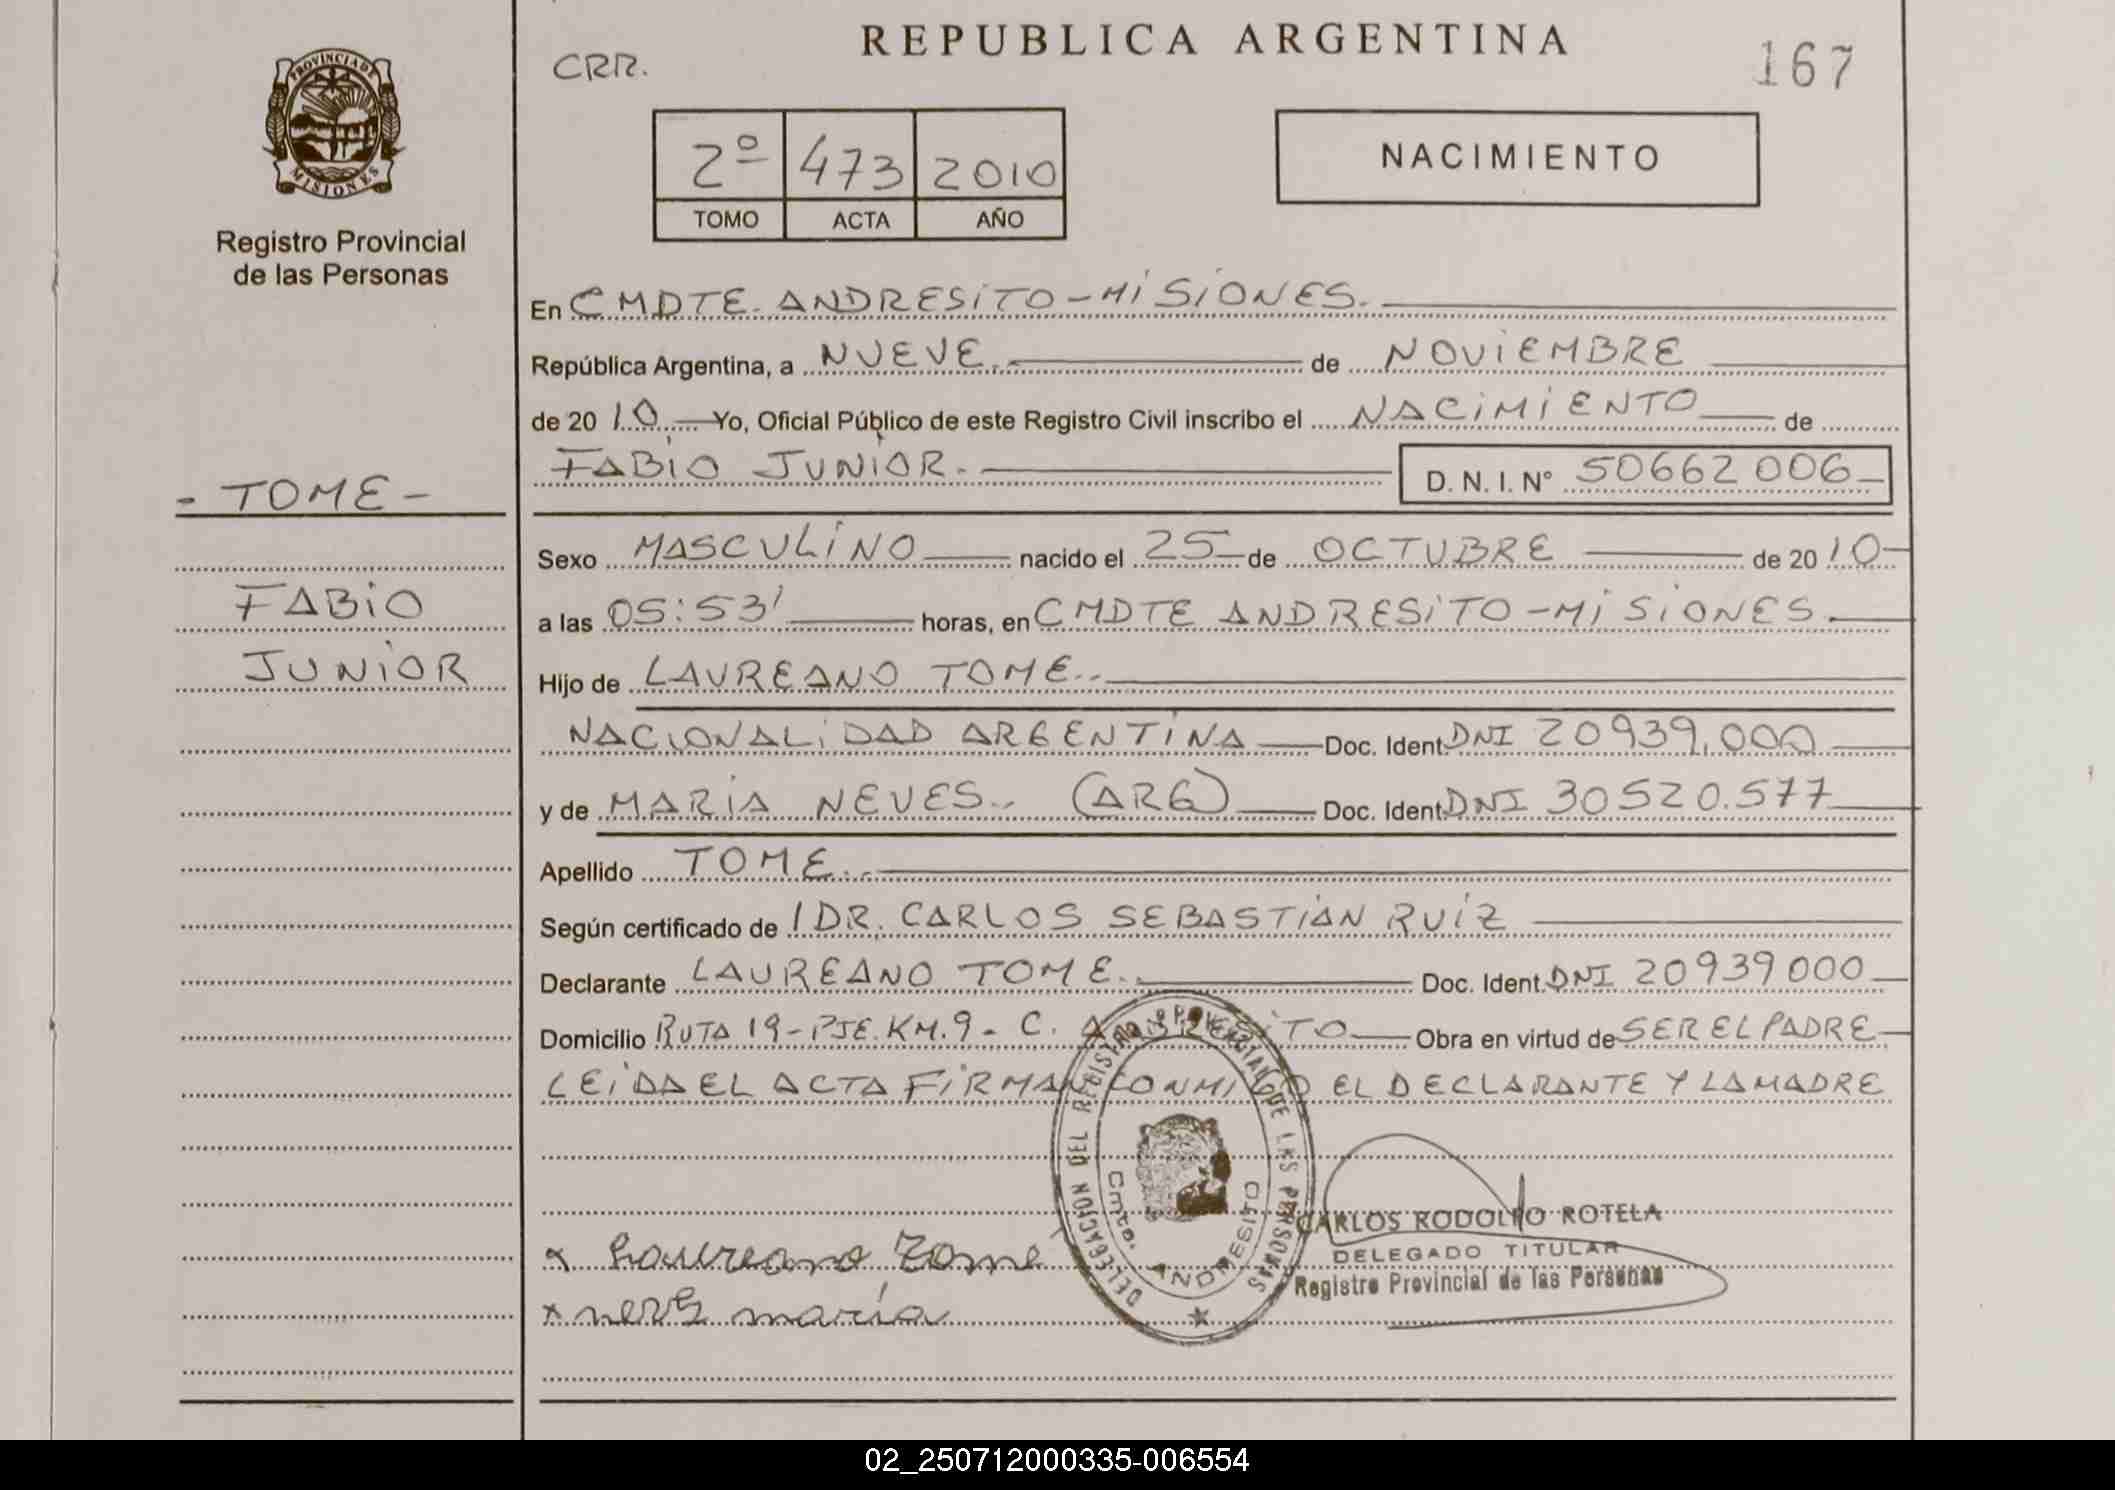 REPUBLICA ARGENTINA
CRR.
167
PROVINCIA DE MISIONES
Registro Provincial
de las Personas
2º 473 2010
TOMO ACTA AÑO
NACIMIENTO
En CMDTE. ANDRESITO-MISIONES.
República Argentina, a NUEVE. de NOVIEMBRE
de 20 10 Yo, Oficial Público de este Registro Civil inscribo el NACIMIENTO de
FABIO JUNIOR. D. N. I. Nº 50662006
- TOME -
FABIO
JUNIOR
Sexo MASCULINO nacido el 25 de OCTUBRE de 20 10
a las 05:53' horas, en CMDTE ANDRESITO-MISIONES.
Hijo de LAUREANO TOME..
NACIONALIDAD ARGENTINA Doc. Ident. DNI 20939.000
y de MARIA NEVES.. (ARG) Doc. Ident. DNI 30520.577
Apellido TOME..
Según certificado de 1 DR. CARLOS SEBASTIAN RUIZ
Declarante LAUREANO TOME. Doc. Ident. DNI 20939000
Domicilio RUTA 19-PJE.KM.9- C. ANDRESITO Obra en virtud de SER EL PADRE
LEIDA EL ACTA FIRMAN CONMIGO EL DECLARANTE Y LA MADRE
DELEGACION DEL REGISTRO PROVINCIAL DE LAS PERSONAS
Cmte. ANDRESITO
CARLOS RODOLFO ROTELA
DELEGADO TITULAR
Registro Provincial de las Personas
x Laureano Tome
x neves maría
02_250712000335-006554